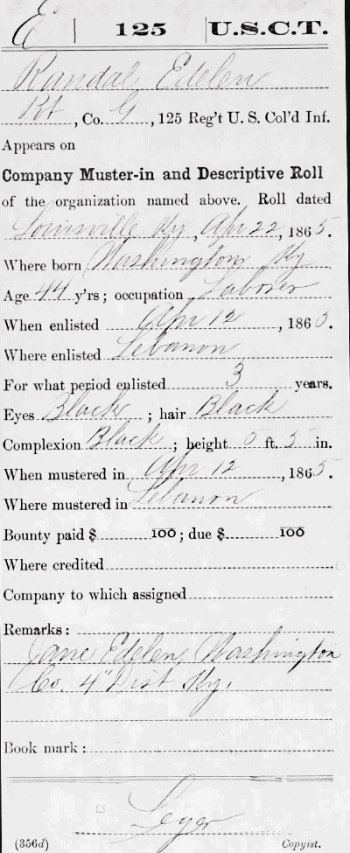 E | 125 | U.S.C.T.
Randal Edelen
Pvt, Co. G, 125 Reg't U. S. Col'd Inf.
Appears on
Company Muster-in and Descriptive Roll
of the organization named above. Roll dated
Louisville Ky, Apr 22, 1865.
Where born Washington Ky
Age 44 y'rs; occupation Laborer
When enlisted Apr 12, 1865.
Where enlisted Lebanon
For what period enlisted 3 years.
Eyes Black; hair Black
Complexion Black; height 5 ft. 5 in.
When mustered in Apr 12, 1865.
Where mustered in Lebanon
Bounty paid $ 100; due $ 100
Where credited
Company to which assigned
Remarks:
Jane Edelen, Washington
Co. 4" Dist Ky.
Book mark:
Leyer
(356d) Copyist.